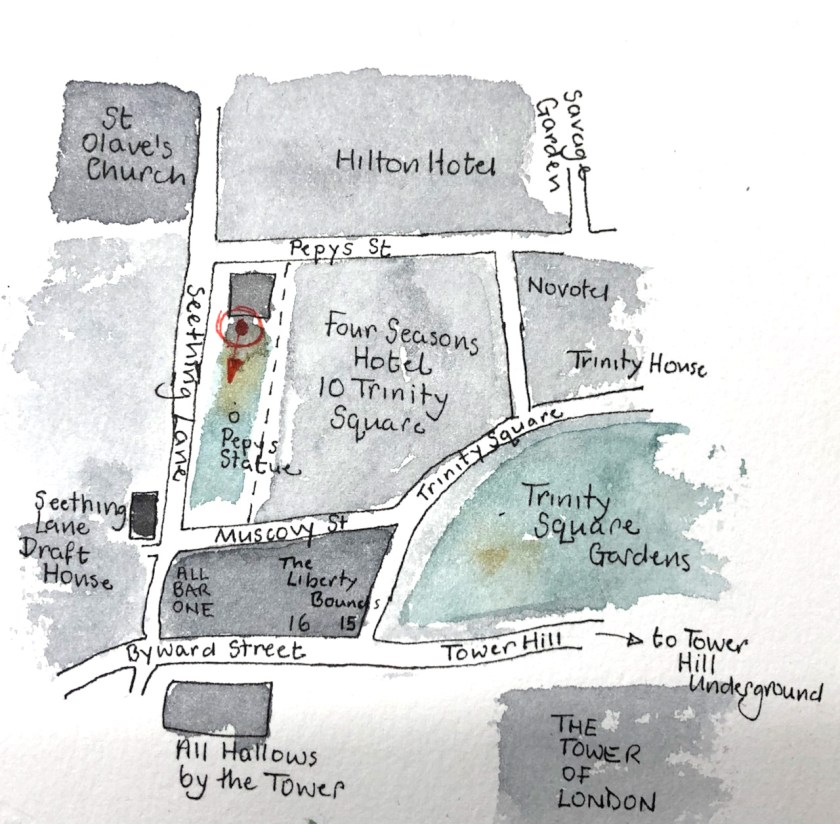 St
Olave's
Church
Hilton Hotel
Savage
Garden
Pepys St
Seething Lane
Novotel
Trinity House
Four Seasons
Hotel
10 Trinity
Square
Pepys
Statue
Trinity Square
Trinity
Square
Gardens
Seething
Lane
Draft
House
Muscovy St
ALL
BAR
ONE
The
Liberty
Bounds
16 15
Byward Street
Tower Hill
to Tower
Hill
Underground
All Hallows
by the Tower
THE
TOWER
OF
LONDON